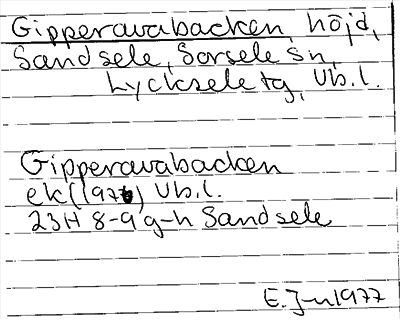 Gipperavabacken, höjd,
Sandsele, Sorsele sn,
Lycksele tg, Vb.l.
Gipperavabacken
ek (1976) Vb.l.
23H 8-9 g-h Sandsele
E. J-n 1977